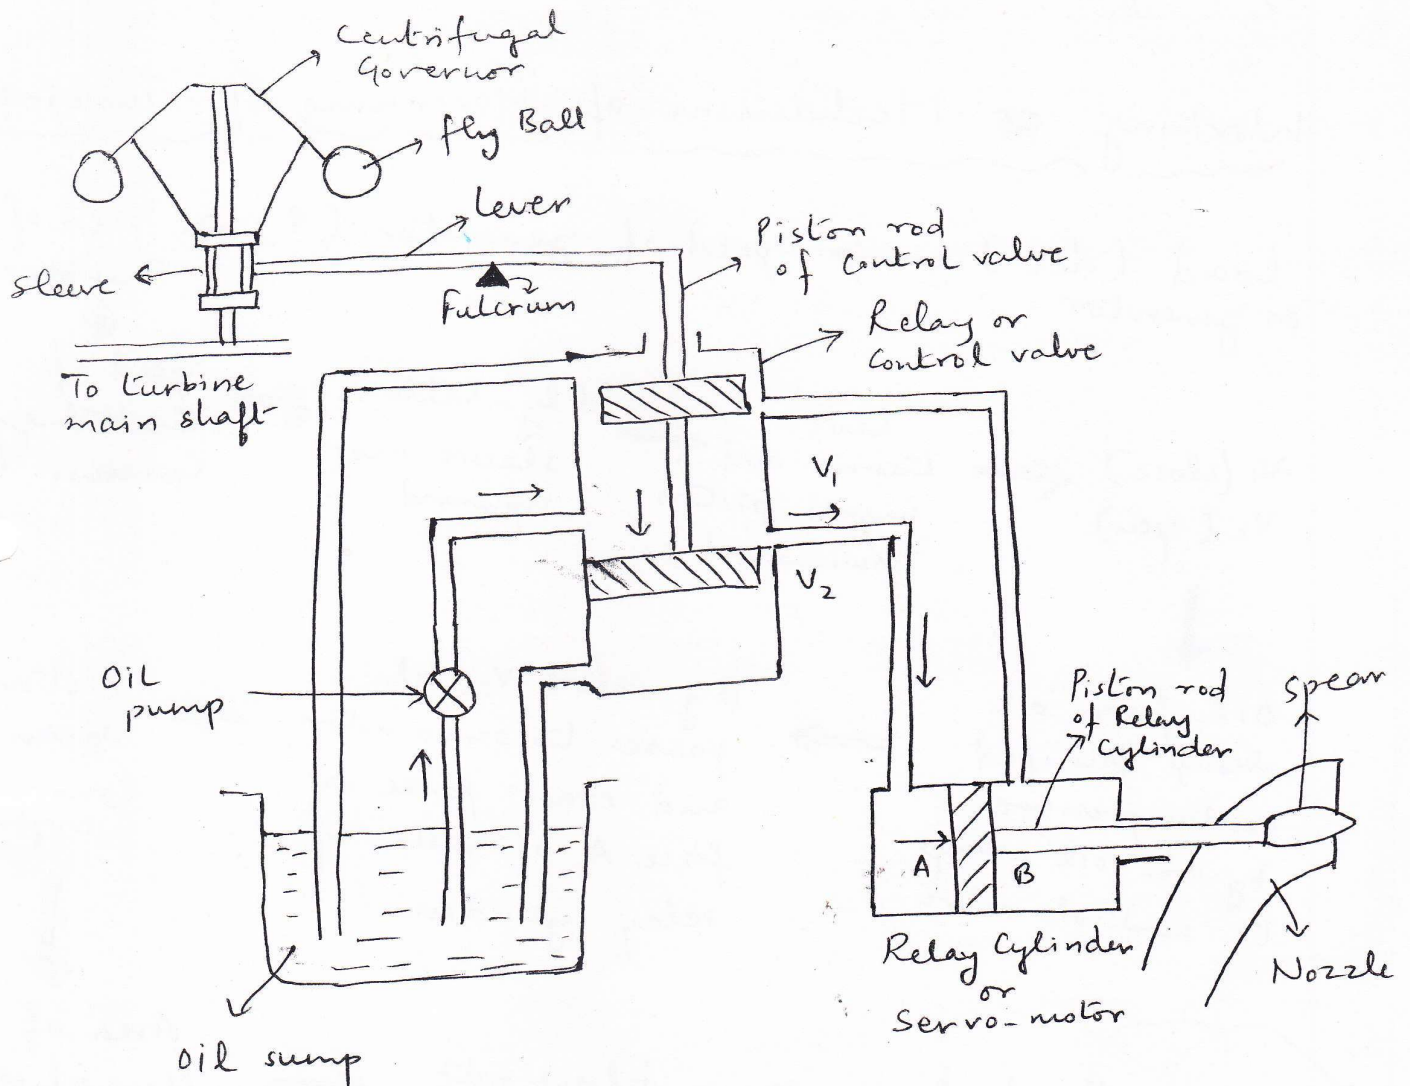 Centrifugal
Governor
fly Ball
Lever
Piston rod
of control valve
Sleeve
Fulcrum
Relay or
Control valve
To turbine
main shaft
V1
V2
Oil
pump
Piston rod
of Relay
Cylinder
Spear
A
B
Relay Cylinder
or
Servo-motor
Nozzle
Oil sump